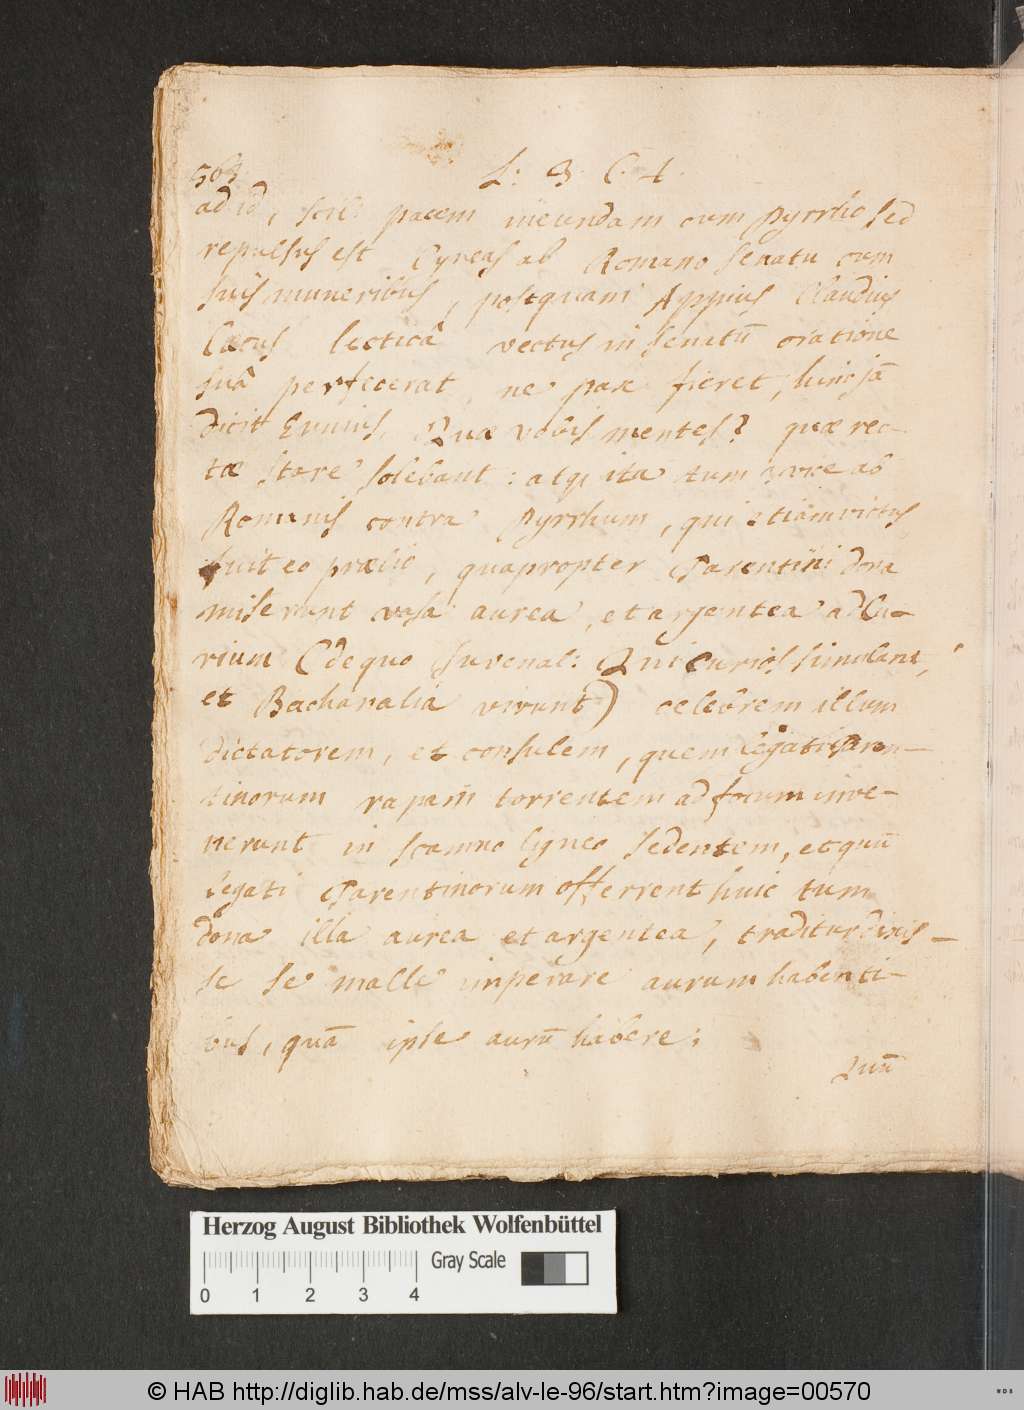 563 L: 3. C. 4.
ad id, scil: pacem ineundam cum Pyrrho sed
repulsus est Cyneas ab Romano senatu cum
suis muneribus, postquam Appius Claudius
Cæcus lecticâ vectus in senatū oratione
suâ perfecerat, ne pax fieret, huic jā
dicit Ennius. Quæ vobis mentes? quæ rec-
tæ stare solebant: atqị ita tum ab
Romanis contra Pyrrhum, qui etiam victus
fuit eo prælio, quapropter Tarentini dona
miserunt vasa aurea, et argentea ad Cu-
rium (de quo Juvenal: Qui curios simulant,
et Bachanalia vivunt) celebrem illum
dictatorem, et consulem, quem legati Taren-
tinorum rapam torrentem ad focum inve-
nerunt in scamno ligneo sedentem, et quū
legati Tarentinorum offerrent huic tum
dona illa aurea et argentea, traditur dixis-
se se malle imperare aurum habenti-
bus, quā ipse aurū habere;
Quū
Herzog August Bibliothek Wolfenbüttel
Gray Scale
0 1 2 3 4
© HAB http://diglib.hab.de/mss/alv-le-96/start.htm?image=00570